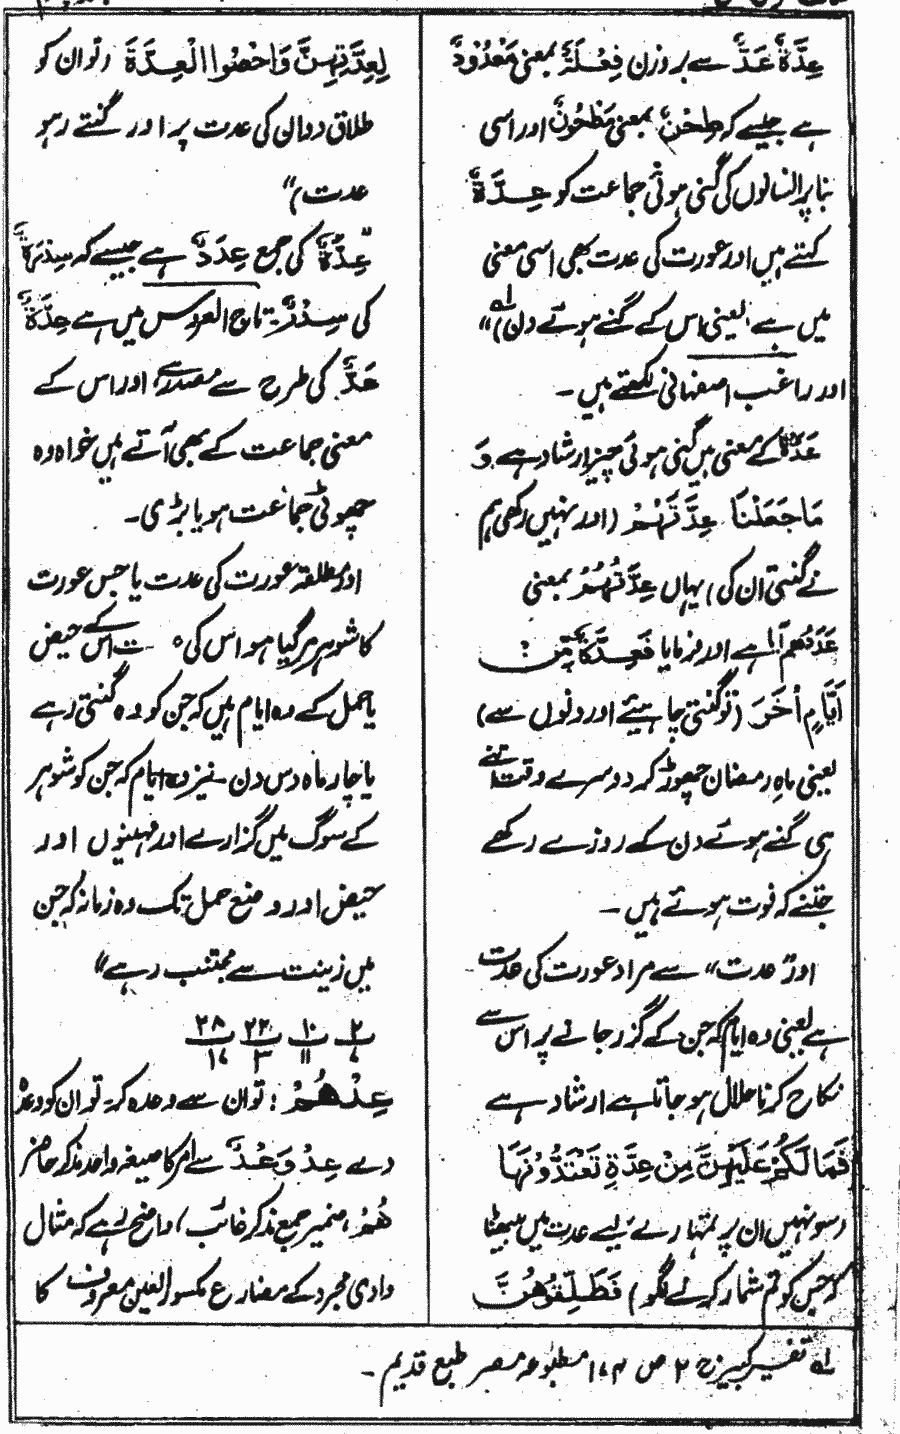 عِدَّةٌ عَدٌّ سے بر وزن فِعْلَةٌ بمعنی مَعْدُوْدٌ
ہے جیسے کہ طِحْنٌ بمعنی مَطْحُوْنٌ اور اسی
بنا پر انسانوں کی گنی ہوئی جماعت کو عِدَّةٌ
کہتے ہیں اور عورت کی عدت بھی اسی معنی
میں ہے، یعنی اس کے گنے ہوئے دن (لہ)"
اور راغب اصفہانی لکھتے ہیں۔
عَدَدٌ کے معنی ہیں گنی ہوئی چیز ارشاد ہے وَ
مَا جَعَلْنَا عِدَّتَهُمْ (اور نہیں رکھی ہم
نے گنتی ان کی) یہاں عِدَّتُهُمْ بمعنی
عَدَدُهم آیا ہے اور فرمایا فَعِدَّةٌ مِّنْ
أَيَّامٍ أُخَرَ (تو گنتی چاہیئے اور دنوں سے)
یعنی ماہِ رمضان چھوڑ کر دوسرے وقت اتنے
ہی گنے ہوئے دن کے روزے رکھے
جتنے کہ فوت ہوئے ہیں۔
اور "عدت" سے مراد عورت کی عدت
ہے یعنی وہ ایام کہ جن کے گزر جانے پر اس سے
نکاح کرنا حلال ہو جاتا ہے ارشاد ہے
فَمَا لَكُمْ عَلَيْهِنَّ مِنْ عِدَّةٍ تَعْتَدُّوْنَهَا
(سو نہیں ان پر تمہارے لیے عدت میں بیٹھنا
کہ جس کو تم شمار کرنے لگو) فَطَلِّقُوْهُنَّ
لِعِدَّتِهِنَّ وَاَحْصُوا الْعِدَّةَ (تو ان کو
طلاق دو ان کی عدت پر اور گنتے رہو
عدت)"
"عِدَّةٌ کی جمع عِدَدٌ ہے جیسے کہ سِدْرَةٌ
کی سِدَرٌ۔ تاج العروس میں ہے عِدَّةٌ
عَدَّ کی طرح سے مصدر ہے، اور اس کے
معنی جماعت کے بھی آتے ہیں خواہ وہ
چھوٹی جماعت ہو یا بڑی۔
اور مطلقہ عورت کی عدت یا جس عورت
کا شوہر مر گیا ہو اس کی عدت اس کے حیض
یا حمل کے وہ ایام ہیں کہ جن کو وہ گنتی رہے
یا چار ماہ دس دن۔ نیز وہ ایام کہ جن کو شوہر
کے سوگ میں گزارے اور مہینوں اور
حیض اور وضع حمل تک وہ زمانہ کہ جن
میں زینت سے مجتنب رہے"
عِدْهُمْ : تو ان سے وعدہ کر۔ تو ان کو وعدہ
دے عِدْ وَعْدٌ سے امر کا صیغہ واحد مذکر حاضر
هُمْ، ضمیر جمع مذکر غائب، واضح رہے کہ مثال
وادی مجرد کے مضارع مکسور العین معروف کا
لہ تفسیر کبیر ج ۲ ص ۱۷۴ مطبوعہ مصر طبع قدیم۔